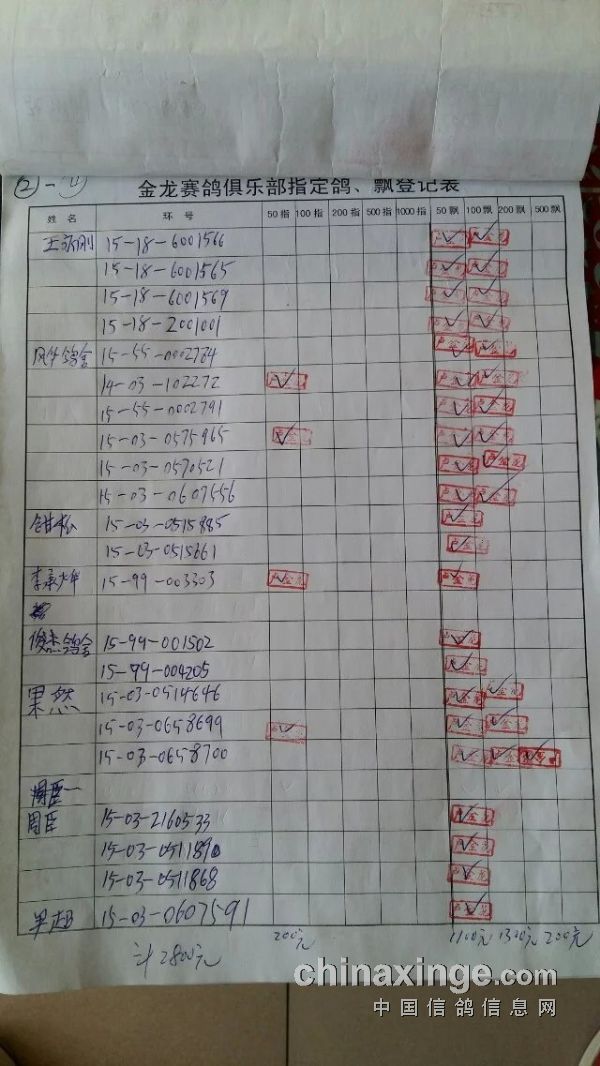 ②-
金龙赛鸽俱乐部指定鸽、飘登记表
姓名 环号 50指 100指 200指 500指 1000指 50飘 100飘 200飘 500飘
15-18-6001566
15-18-6001565
15-18-6001569
15-18-2001001
15-55-0002784
14-03-102272
15-55-0002791
15-03-0575965
15-03-0570521
15-03-0607556
15-03-0515885
15-03-0515861
15-99-003303
俊杰鸽舍 15-99-001502
15-99-004205
果然 15-03-0514646
15-03-0658699
15-03-0658700
周臣 15-03-2160533
15-03-0511890
15-03-0511868
15-03-0607591
200元 1100元 1300元 200元
计2800元
chinaxinge.com
中国信鸽信息网